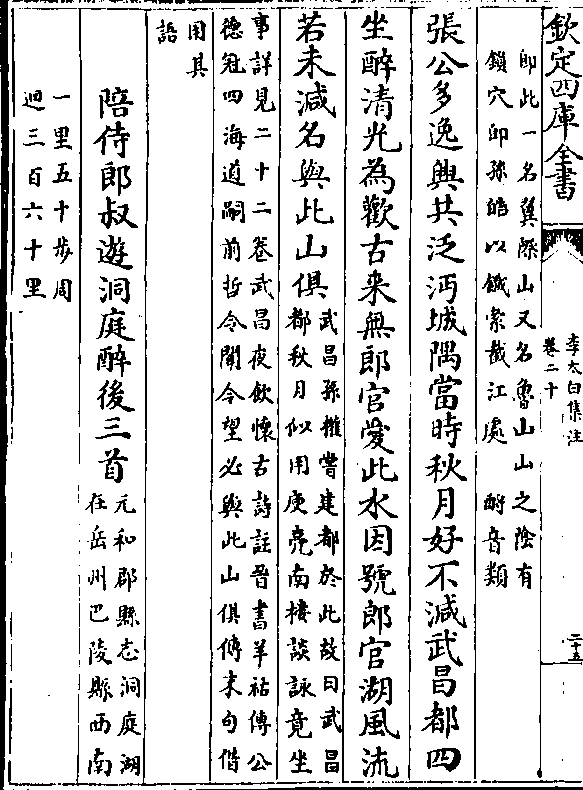 欽定四庫全書
李太白集注
卷二十
二十五
即此一名翼際山又名魯山山之陰有
鎖穴即孫皓以鐵索截江處 酹音類
張公多逸興共泛沔城隅當時秋月好不減武昌都四
坐醉清光為歡古来無郎官愛此水因號郎官湖風流
若未減名與此山俱
武昌孫權嘗建都於此故曰武昌
都秋月似用庾亮南樓談詠竟坐
事詳見二十二卷武昌夜飲懷古詩註晉書羊祜傳公
德冠四海道嗣前哲令聞令望必與此山俱傳末句借
用其
語
陪侍郎叔遊洞庭醉後三首
元和郡縣志洞庭湖
在岳州巴陵縣西南
一里五十步周
迴三百六十里